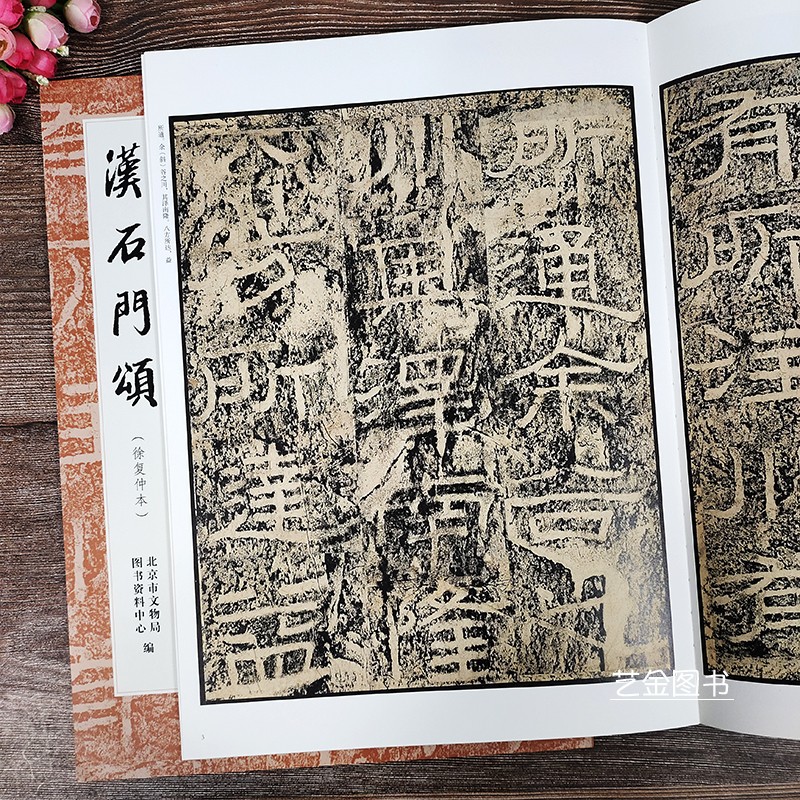 漢石門頌
（徐复仲本）
北京市文物局
图书资料中心 编
所通。余（斜）谷之川，其泽南隆。八方所达，益
有所注川有
所通余谷之
川其澤南隆
八方所達益
3
艺金图书